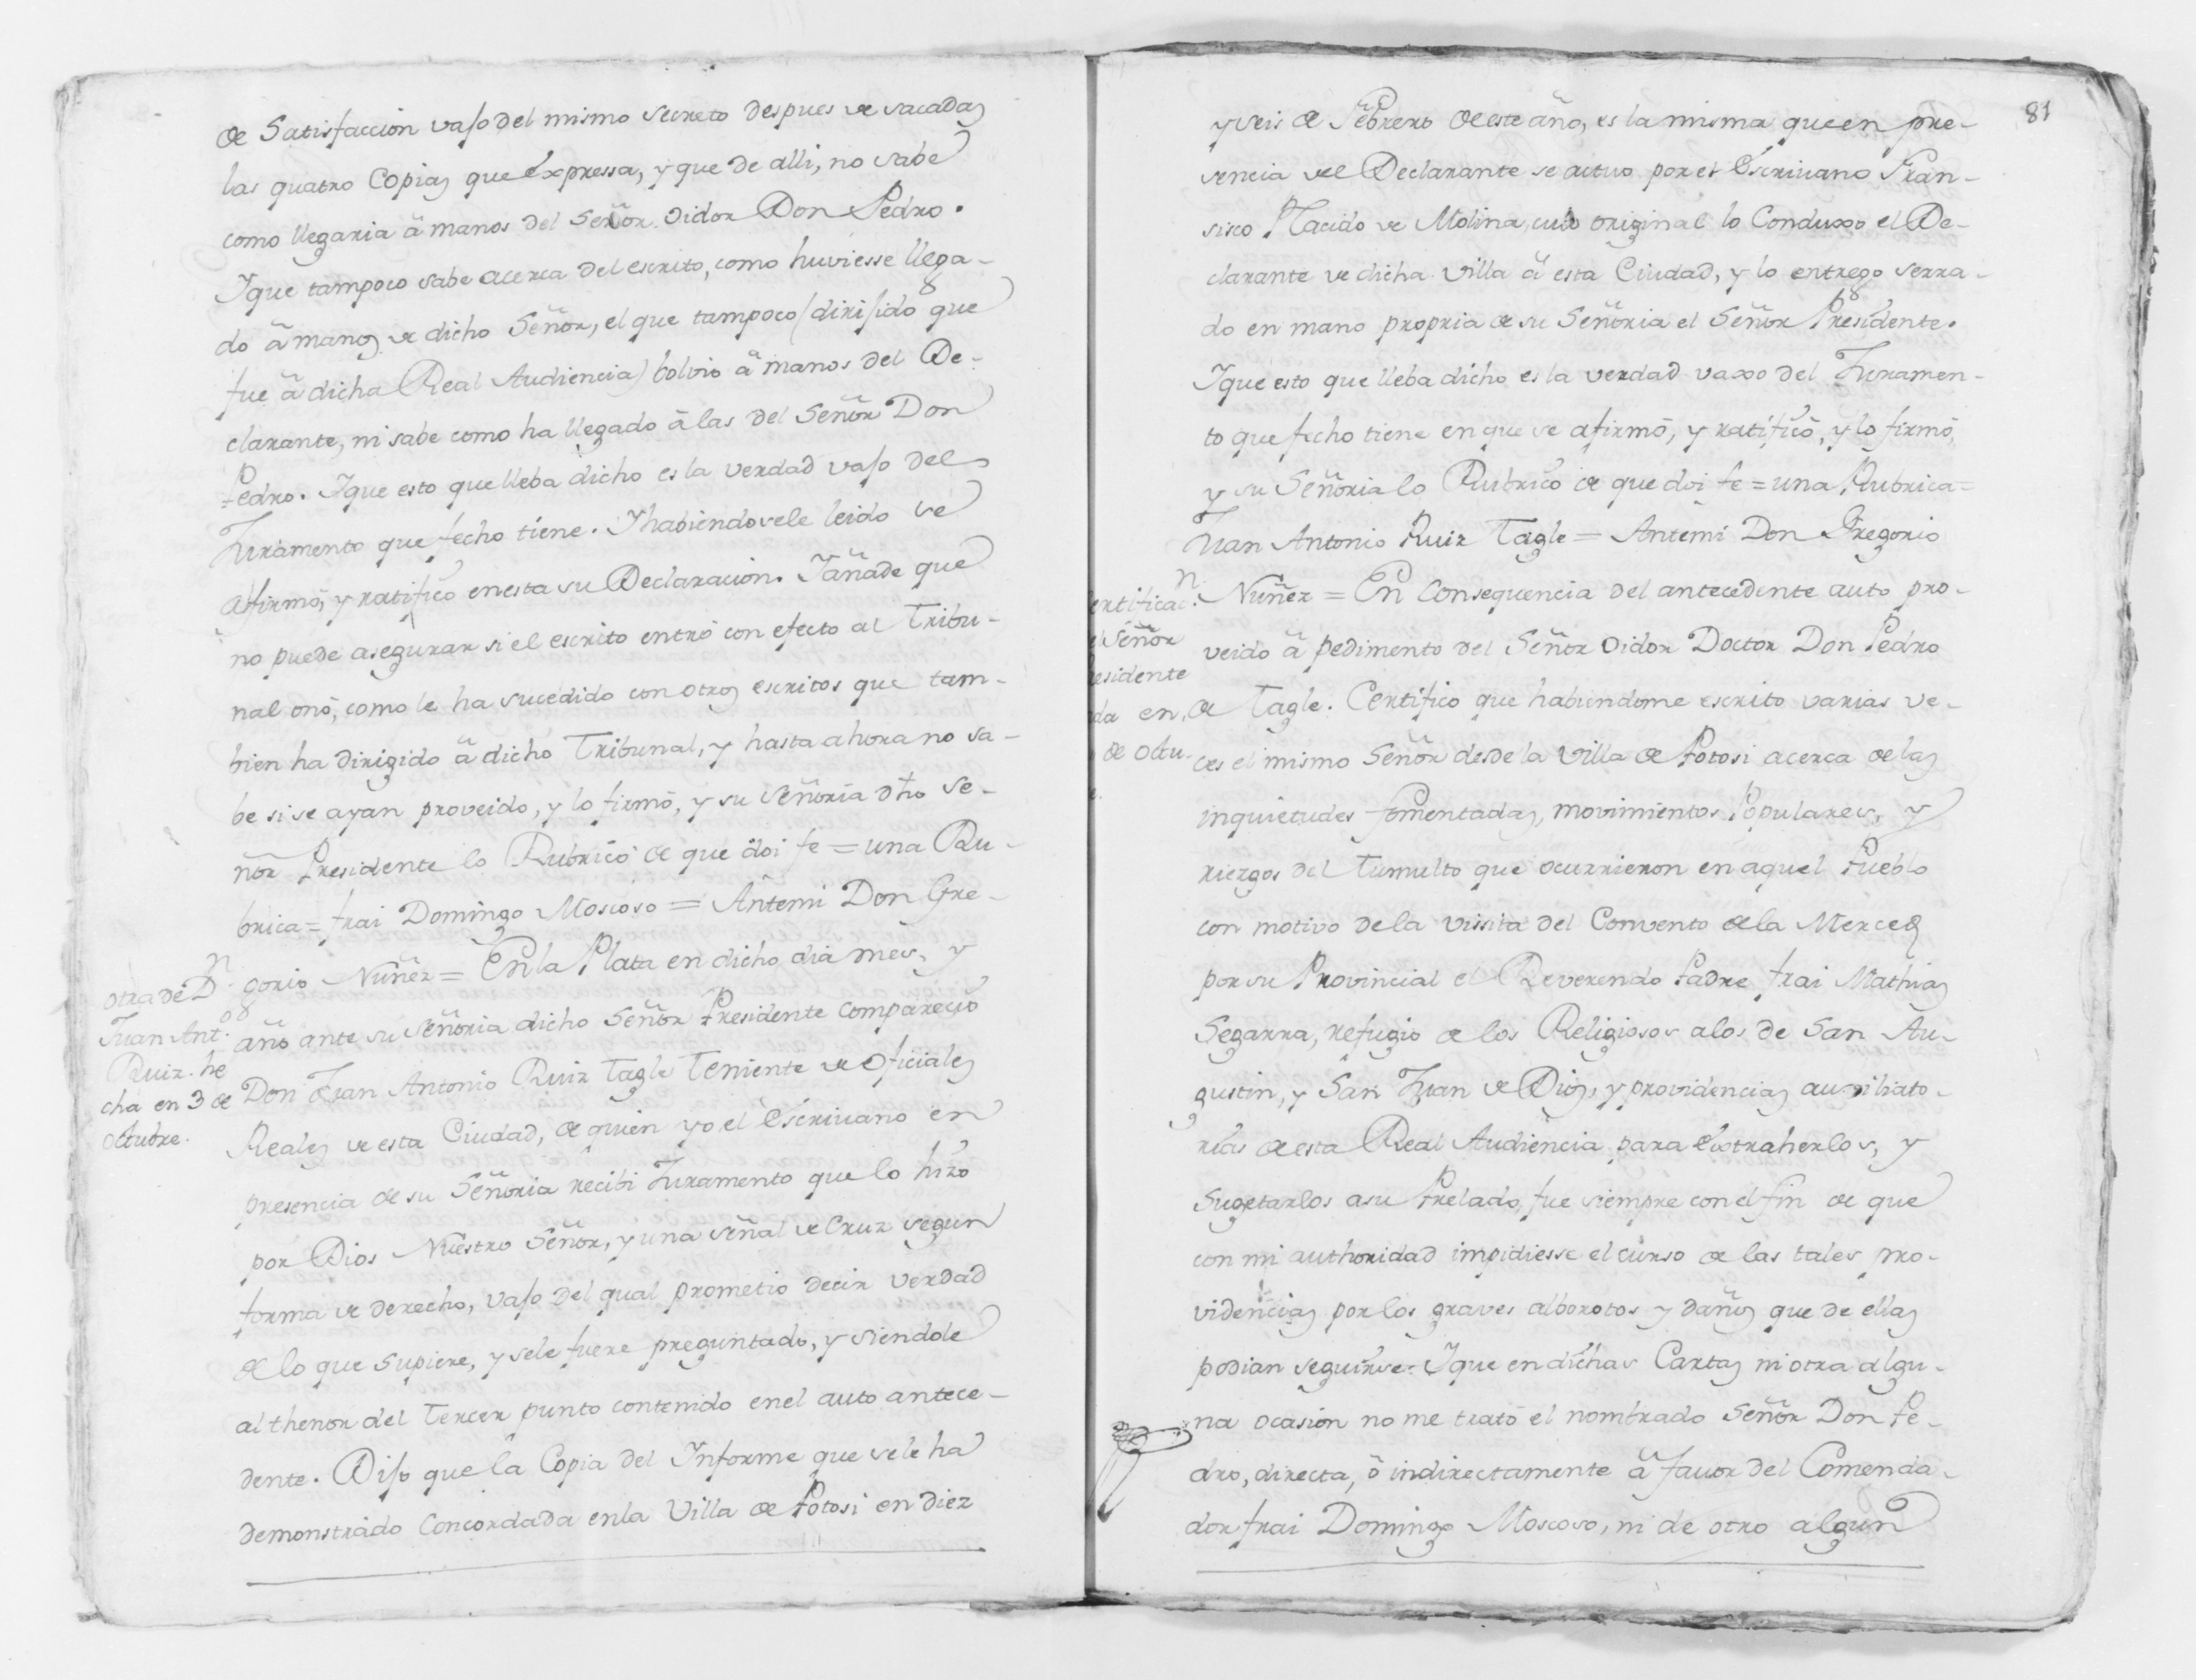 de Satisfaccion vajo del mismo secreto despues de sacadas
las quatro Copias que expressa, y que de alli, no sabe
como llegaria â manos del Señor Oidor Don Pedro.
Y que tampoco sabe acerca del escrito, como huviesse llega-
do â manos de dicho Señor, el que tampoco (dirijido que
fue â dicha Real Audiencia) bolvio â manos del De-
clarante, ni sabe como ha llegado â las del Señor Don
Pedro. Y que esto que lleba dicho es la verdad vajo del
Juramento que fecho tiene. Y habiendosele leido se
afirmó, y ratificó en esta su Declaracion. Y añade que
no puede asegurar si el escrito entró con efecto al Tribu-
nal onó, como le ha sucedido con otros escritos que tam-
bien ha dirigido â dicho Tribunal, y hasta ahora no sa-
be si se ayan proveido, y lo firmó, y su Señoria dho Se-
ñor Presidente lo Rubricó de que doi fe = una Ru-
brica = frai Domingo Moscoso = Antemi Don Gre-
gorio Nuñez = En la Plata en dicho dia mes, y
otra de Dn.
Juan Anto.
Ruiz he
cha en 3 de
Octubre.
año ante su Señoria dicho Señor Presidente Comparecio
Don Juan Antonio Ruiz Tagle Teniente de Oficiales
Reales de esta Ciudad, de quien yo el Escrivano en
presencia de su Señoria recibi Juramento que lo hizo
por Dios Nuestro Señor, y una señal de Cruz segun
forma de derecho, vajo del qual prometio decir verdad
de lo que supiere, y sele fuere preguntado, y siendole
al thenor del Tercer punto contenido enel auto antece-
dente. Dijo que la Copia del Informe que sele ha
demonstrado Concordada enla Villa de Potosi en diez
81
y seis de Febrero de este año, es la misma que en pre-
sencia del Declarante se actuo por el Escrivano Fran-
sisco Placido de Molina, cuio original lo Conduxo el De-
clarante de dicha Villa â esta Ciudad, y lo entrego serra-
do en mano propria de su Señoria el Señor Presidente.
Y que esto que lleba dicho es la verdad vaxo del Juramen-
to que fecho tiene en que se afirmó, y ratificó, y lo firmó,
y su Señoria lo Rubricó de que doi fe = una Rubrica =
Juan Antonio Ruiz Tagle = Antemi Don Gregorio
Nuñez = En Consequencia del antecedente auto pro-
ertificacn.
l Señor
esidente
da en,
de Octu-
e.
veido â pedimento del Señor Oidor Doctor Don Pedro
de Tagle. Certifico que habiendome escrito varias ve-
ces el mismo Señor desde la Villa de Potosi acerca de las
inquietudes fomentadas, movimientos Populares, y
riezgos del Tumulto que ocurrieron en aquel Pueblo
con motivo de la vissita del Convento de la Merced
por su Provincial el Reverendo Padre frai Mathias
Segarra, refugio de los Religiosos alos de San Au-
gustin, y San Juan de Dios, y providencias auxiliato-
rias de esta Real Audiencia para Extraherlos, y
Sugetarlos asu Prelado, fue siempre con el fin de que
con mi authoridad impidiesse el curso de las tales pro-
videncias por los graves alborotos y daños que de ellas
podian seguirse. Y que en dichas Cartas ni otra algu-
na ocasion no me trató el nombrado Señor Don Pe-
dro, directa, ô indirectamente â favor del Comenda-
dor frai Domingo Moscoso, ni de otro algun